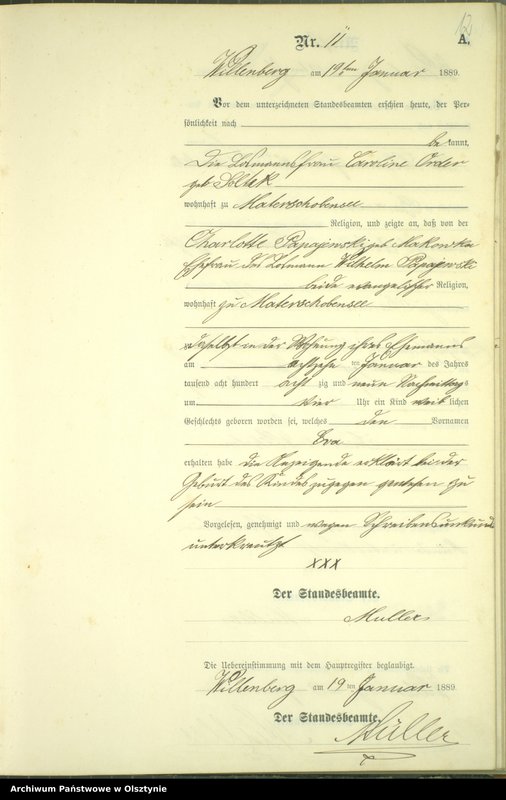 12
Nr. 11
A.
Willenberg am 19ten Januar 1889.
Vor dem unterzeichneten Standesbeamten erschien heute, der Per-
sönlichkeit nach
be kannt,
die Losmannsfrau Caroline Order
geb Soltek
wohnhaft zu Materschobensee
Religion, und zeigte an, daß von der
Charlotte Papajewski geb Makowka
Ehefrau des Losmann Wilhelm Papajewski
beide evangelischer Religion,
wohnhaft zu Materschobensee
daselbst in der Wohnung ihres Ehemanns
am achtzehn ten Januar des Jahres
tausend acht hundert acht zig und neun Nachmittags
um vier Uhr ein Kind weib lichen
Geschlechts geboren worden sei, welches den Vornamen
Eva
erhalten habe die Anzeigende erklärt bei der
Geburt des Kindes zugegen gewesen zu
sein
Vorgelesen, genehmigt und wegen Schreibensunkunde
unterkreutzt
XXX
Der Standesbeamte.
Müller
Die Uebereinstimmung mit dem Hauptregister beglaubigt.
Willenberg am 19 ten Januar 1889.
Der Standesbeamte.
Müller
Archiwum Państwowe w Olsztynie